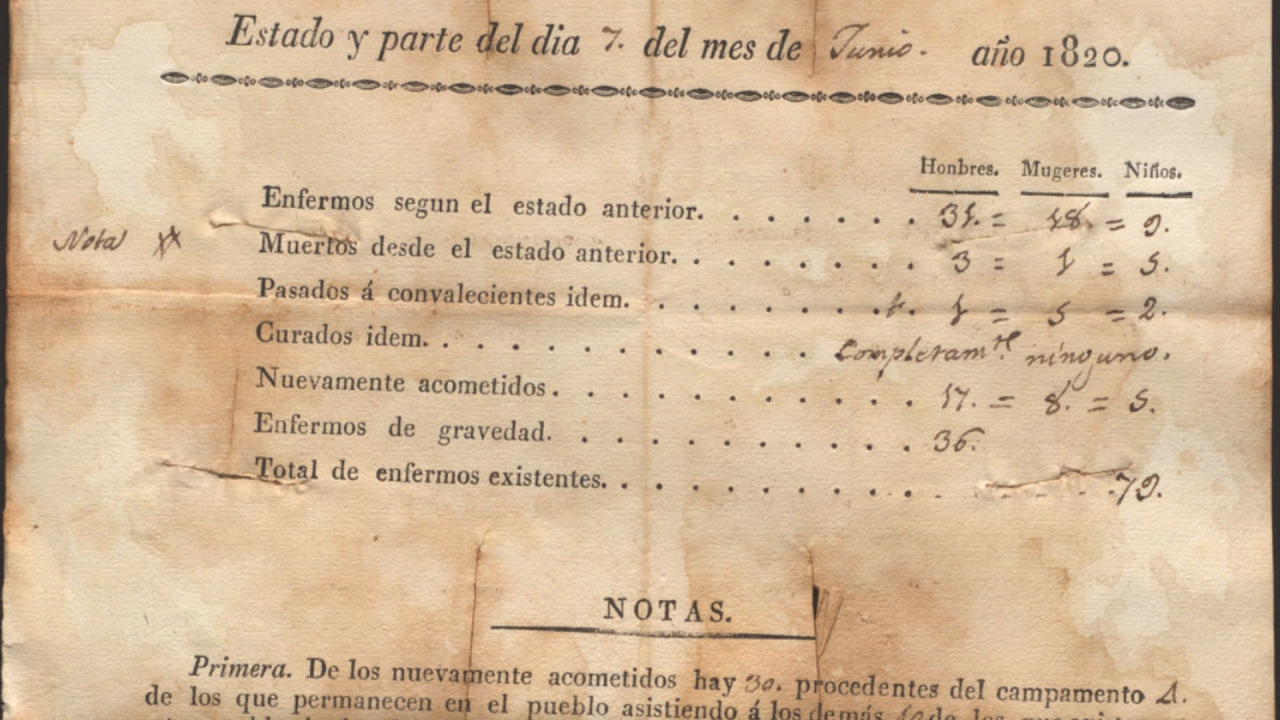 Estado y parte del dia 7. del mes de Junio. año 1820.
Honbres. Mugeres. Niños.
Enfermos segun el estado anterior. . . . . . . . 31. = 18. = 9.
Nota Muertos desde el estado anterior. . . . . . . . . 3 = 1 = 5.
Pasados á convalecientes idem. . . . . . . . . 1 = 5 = 2.
Curados idem. . . . . . . . . . . . completamte. ninguno.
Nuevamente acometidos. . . . . . . . . . . . 17. = 8. = 5.
Enfermos de gravedad. . . . . . . . . . . 36.
Total de enfermos existentes. . . . . . . . . . . . . . . 79.
NOTAS.
Primera. De los nuevamente acometidos hay 30. procedentes del campamento
de los que permanecen en el pueblo asistiendo á los demás de los